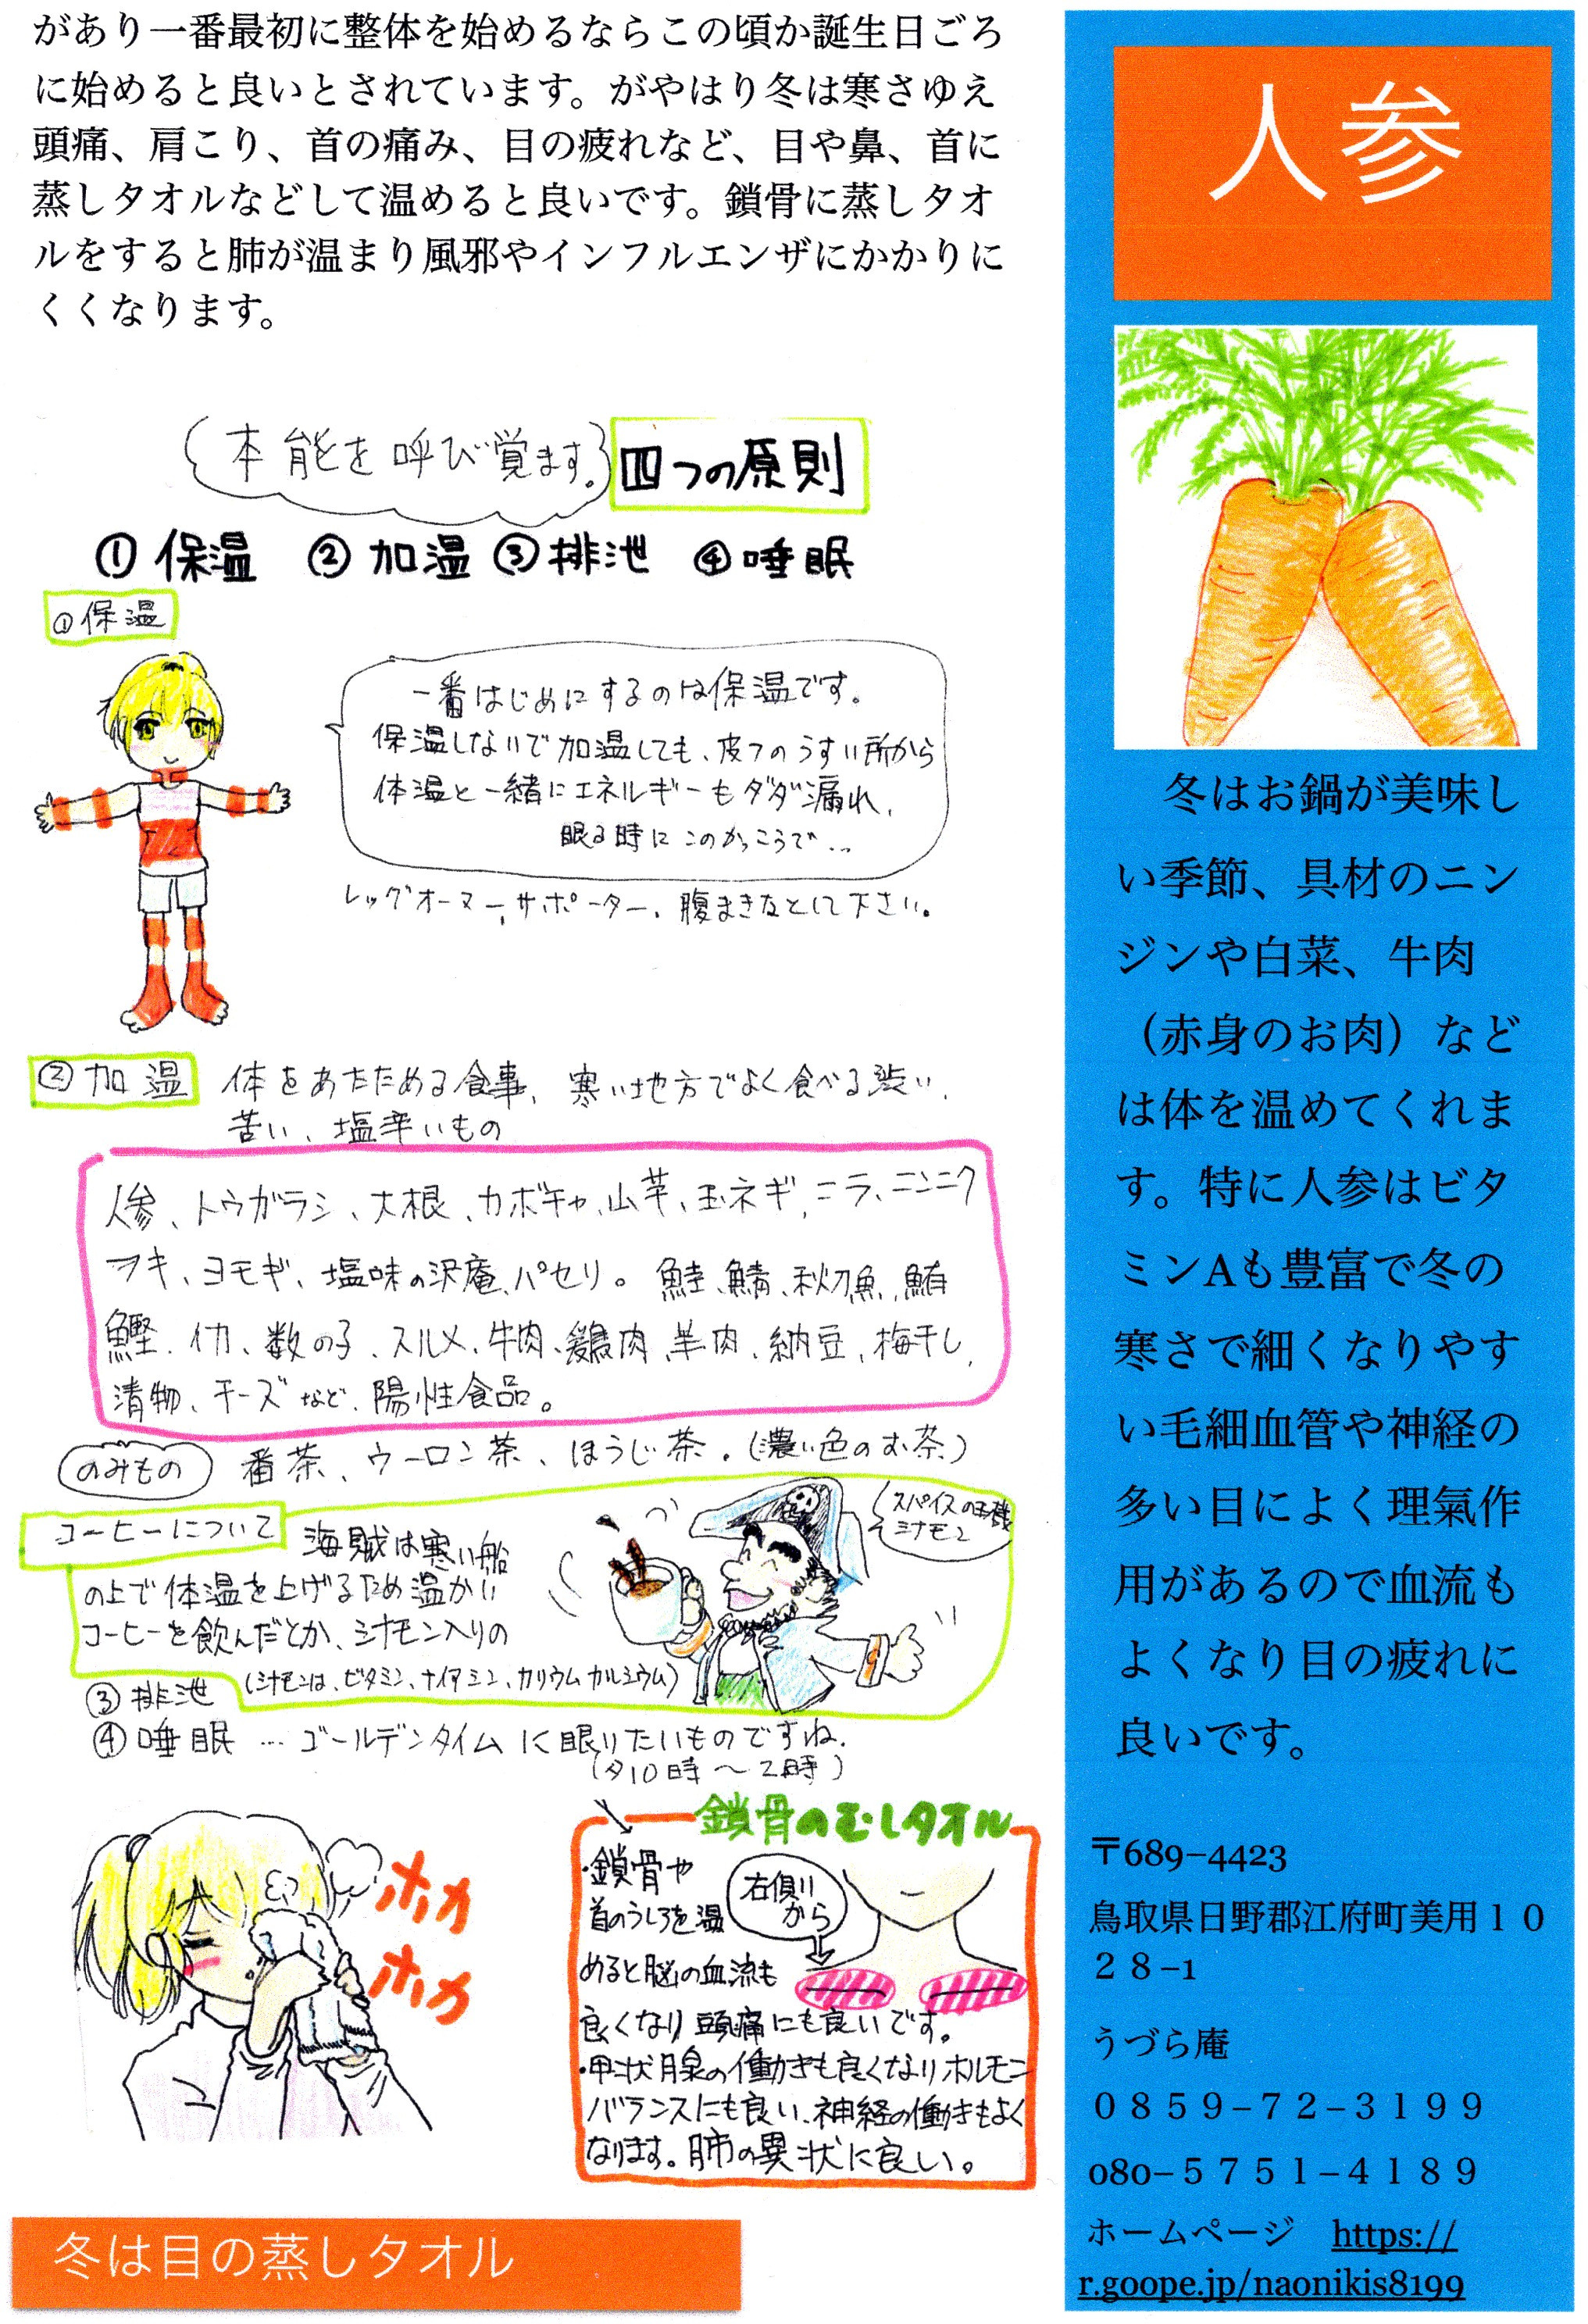 があり一番最初に整体を始めるならこの頃か誕生日ごろ
に始めると良いとされています。がやはり冬は寒さゆえ
頭痛、肩こり、首の痛み、目の疲れなど、目や鼻、首に
蒸しタオルなどして温めると良いです。鎖骨に蒸しタオ
ルをすると肺が温まり風邪やインフルエンザにかかりに
くくなります。
本能を呼び覚ます。四つの原則
①保温 ②加温 ③排泄 ④唾眠
①保温
一番はじめにするのは保温です。
保温しないで加温しても、皮フのうすい所から
体温と一緒にエネルギーもダダ漏れ、
眠る時にこのかっこうで…
レッグオーマー、サポーター、腹まきなとして下さい。
②加温 体をあたためる食事、寒い地方でよく食べる渋い、
苦い、塩辛いもの
人参、トウガラシ、大根、カボチャ、山芋、玉ネギ、ニラ、ニンニク
フキ、ヨモギ、塩味の沢庵、パセリ。鮭、鯖、秋刀魚、鮪
鰹、イカ、数の子、スルメ、牛肉、鶏肉、羊肉、納豆、梅干し、
漬物、チーズなど、陽性食品。
のみもの 番茶、ウーロン茶、ほうじ茶。(濃い色のお茶)
コーヒーについて 海賊は寒い船
の上で体温を上げるため温かい
コーヒーを飲んだとか、シナモン入りの
(シナモンは、ビタミン、ナイアシン、カリウム カルシウム)
スパイスの王様
シナモン
③排泄
④唾眠 … ゴールデンタイムに眠りたいものですね.
(夕10時〜2時)
ホカ
ホカ
鎖骨のむしタオル
・鎖骨や
首のうしろを温
めると脳の血流も
良くなり頭痛にも良いです。
・甲状腺の働きも良くなりホルモン
バランスにも良い、神経の働きもよく
なります。肺の異状に良い。
右側
から
冬は目の蒸しタオル
人参
冬はお鍋が美味し
い季節、具材のニン
ジンや白菜、牛肉
（赤身のお肉）など
は体を温めてくれま
す。特に人参はビタ
ミンAも豊富で冬の
寒さで細くなりやす
い毛細血管や神経の
多い目によく理氣作
用があるので血流も
よくなり目の疲れに
良いです。
〒689-4423
鳥取県日野郡江府町美用１０
２８-1
うづら庵
０８５９-７２-３１９９
080-５７５１-４１８９
ホームページ https://
r.goope.jp/naonikis8199